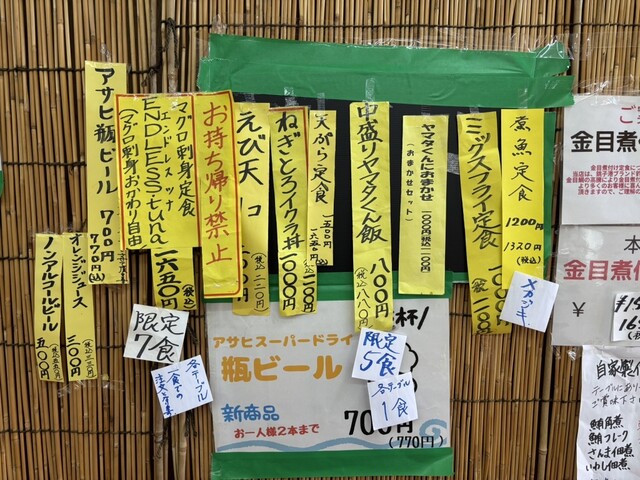 アサヒ瓶ビール
700円
770円(込)
オレンジジュース
300円
(税込)三三〇円
ノンアルコールビール
五〇〇円
(税込)五五〇円
マグロ刺身定食
エンドレスツナ
ENDLESS・tuna
(マグロ刺身おかわり自由)
一六五〇円
(税込)
お持ち帰り禁止
限定
7食
各テーブル
一食での
えび天
ねぎとろイクラ丼
一〇〇〇円
(税込)一一〇〇円
天ぷら定食
一五〇〇円
一六五〇(税込)
中盛りヤマタくん飯
八〇〇円
(税込)八八〇円
限定
5食
各テーブル
1食
ヤマタくんにおまかせ
(おまかせセット)
ミックスフライ定食
煮魚定食
1200円
1320円
(税込)
メカジキ
杯/
アサヒスーパードライ
瓶ビール
新商品
お一人様2本まで
700円
(770円)
金目煮付
金目煮
¥
自家製
テーブルに
ご賞味下さ
鮪角煮
鮪フレーク
さんま佃煮
いわし佃煮